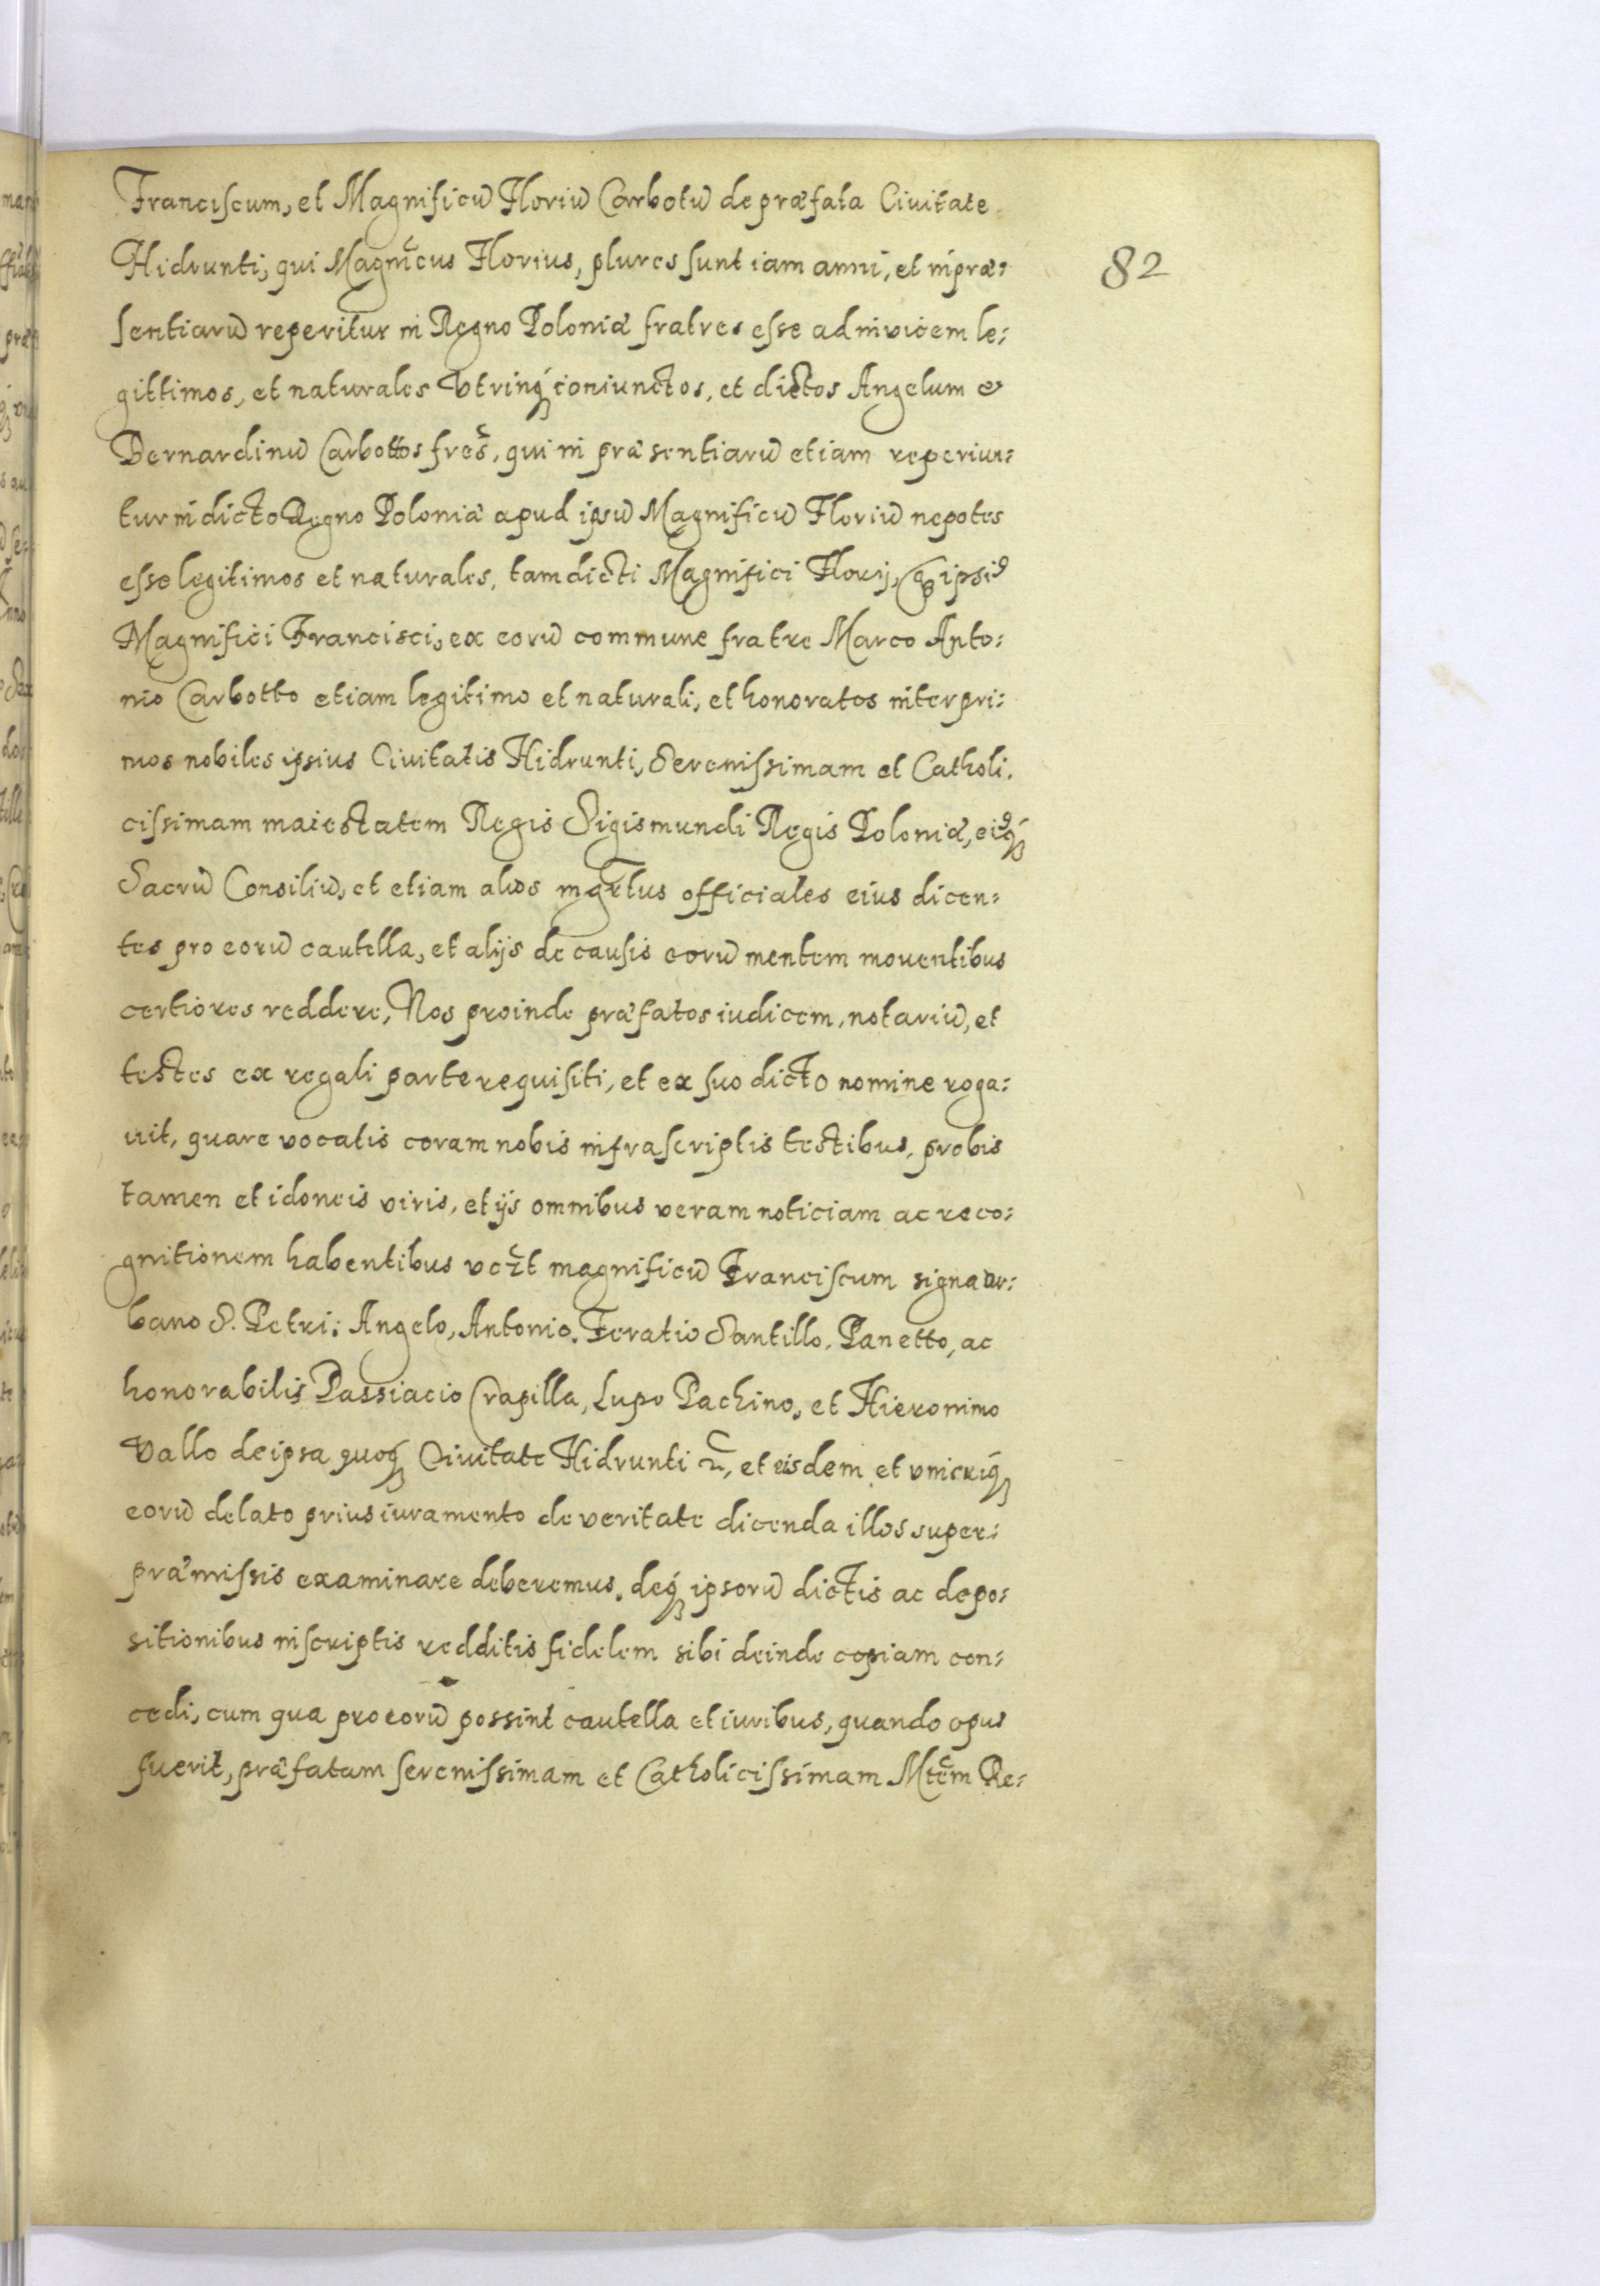 Franciscum, et Magnificū Floriū Carbotū de præfata Ciuitate
Hidrunti, qui Magnicus Florius, plures sunt iam anni, et in præ:
82
sentiarū reperitur in Regno Poloniæ fratres esse ad invicem le:
gittimos, et naturales Vtrinq́ coniunctos, et dictos Angelum &
Bernardinū Carbottos fres̃, qui in præsentiarū etiam reperiun:
tur in dicto Regno Poloniæ apud ipsū Magnificū Floriū nepotes
esse legitimos et naturales, tam dicti Magnifici Florij, ipsiꝰ
Magnifici Francisci, ex eorū commune fratre Marco Anto:
nio Carbotto etiam legitimo et naturali, et honoratos inter pri:
mos nobiles ipsius Ciuitatis Hidrunti, Serenissimam et Catholi.
cissimam maiestatem Regis Sigismundi Regis Poloniæ, eiꝰq́
Sacrū Consiliū, et etiam alios officiales eius dicen:
tes pro eorū cautella, et alijs de causis eorū mentem mouentibus
certiores reddere, Nos proinde præfatos iudicem, notariū, et
testes ex regali parte requisiti, et ex suo dicto nomine roga:
uit, quare vocatis coram nobis infrascriptis testibus, probis
tamen et idoneis viris, et ijs omnibus veram noticiam ac reco:
gnitionem habentibus magnificū Franciscum signa
bano S. Petri: Angelo, Antonio. Feratio Santillo. Panetto, ac
honorabilis Passiacio Crapilla, Lupo Pachino, et Hieronimo
Vallo de ipsa quoq́ Ciuitate Hidrunti et eisdem et vnicuiq́
eorū delato prius iuramento de veritate dicenda illos super:
præmissis examinare deberemus. deq́ ipsorū dictis ac depo:
sitionibus in scriptis redditis fidelem sibi deinde copiam con:
cedi, cum qua pro eorū possint cautella et iuribus, quando opus
fuerit, præfatam serenissimam et Catholicissimam Mtem Re: